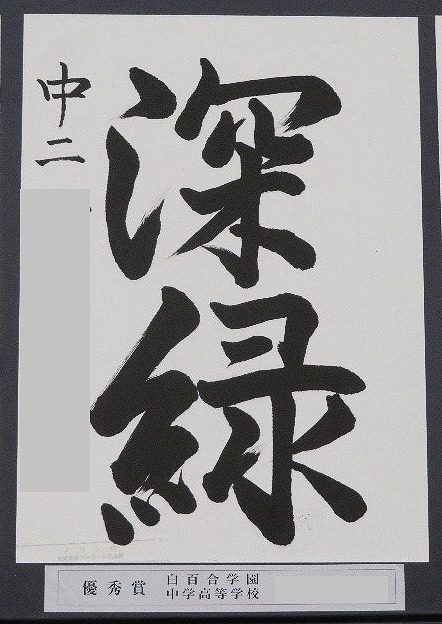 深緑
中二
優秀賞
白百合学園
中学高等学校